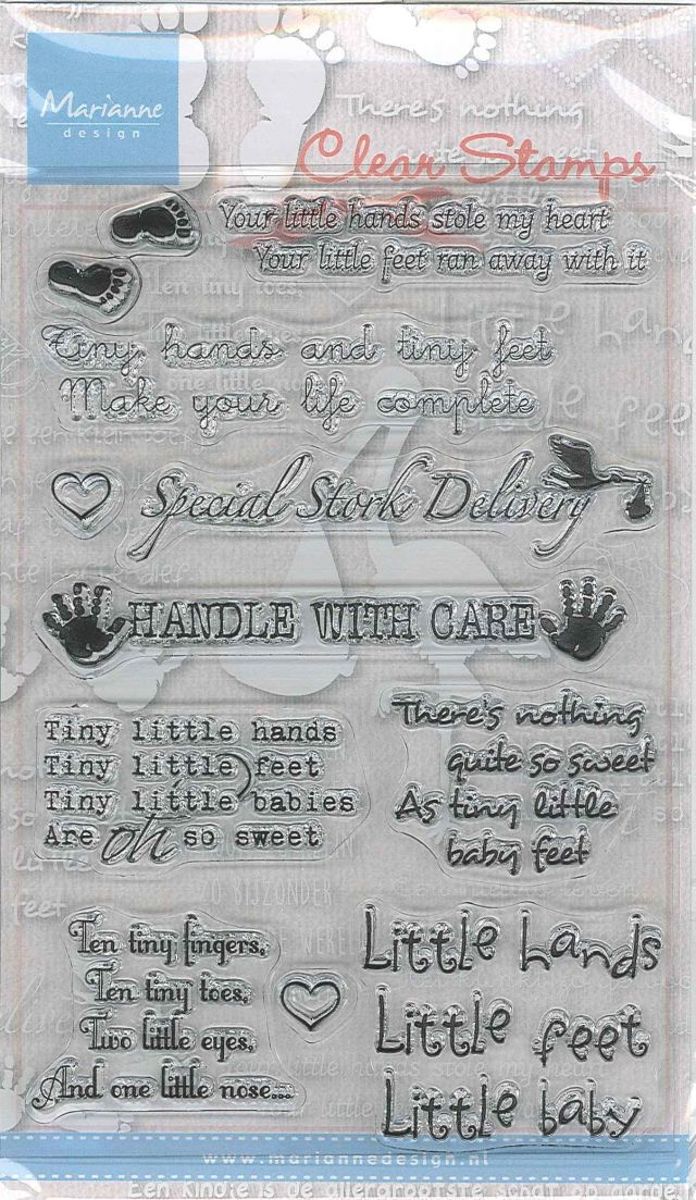 Marianne
design
There's nothing
Clear Stamps
Your little hands stole my heart
Your little feet ran away with it
Ten tiny toes,
Tiny hands and tiny feet
Make your life complete
Special Stork Delivery
HANDLE WITH CARE
Tiny little hands
Tiny little feet
Tiny little babies
Are oh so sweet
There's nothing
quite so sweet
As tiny little
baby feet
Ten tiny fingers,
Ten tiny toes,
Two little eyes,
And one little nose...
Little hands
Little feet
Little baby
www.mariannedesign.nl